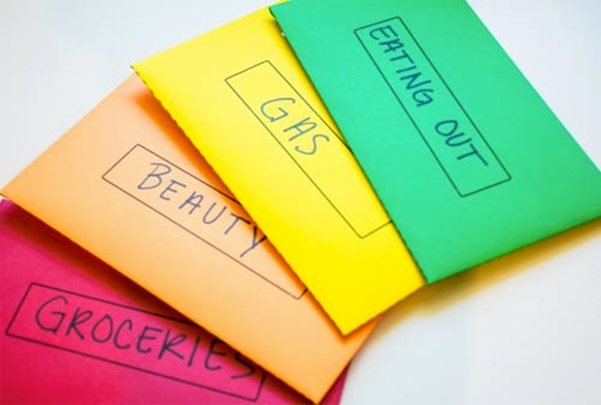 EATING OUT
GAS
BEAUTY
GROCERIES